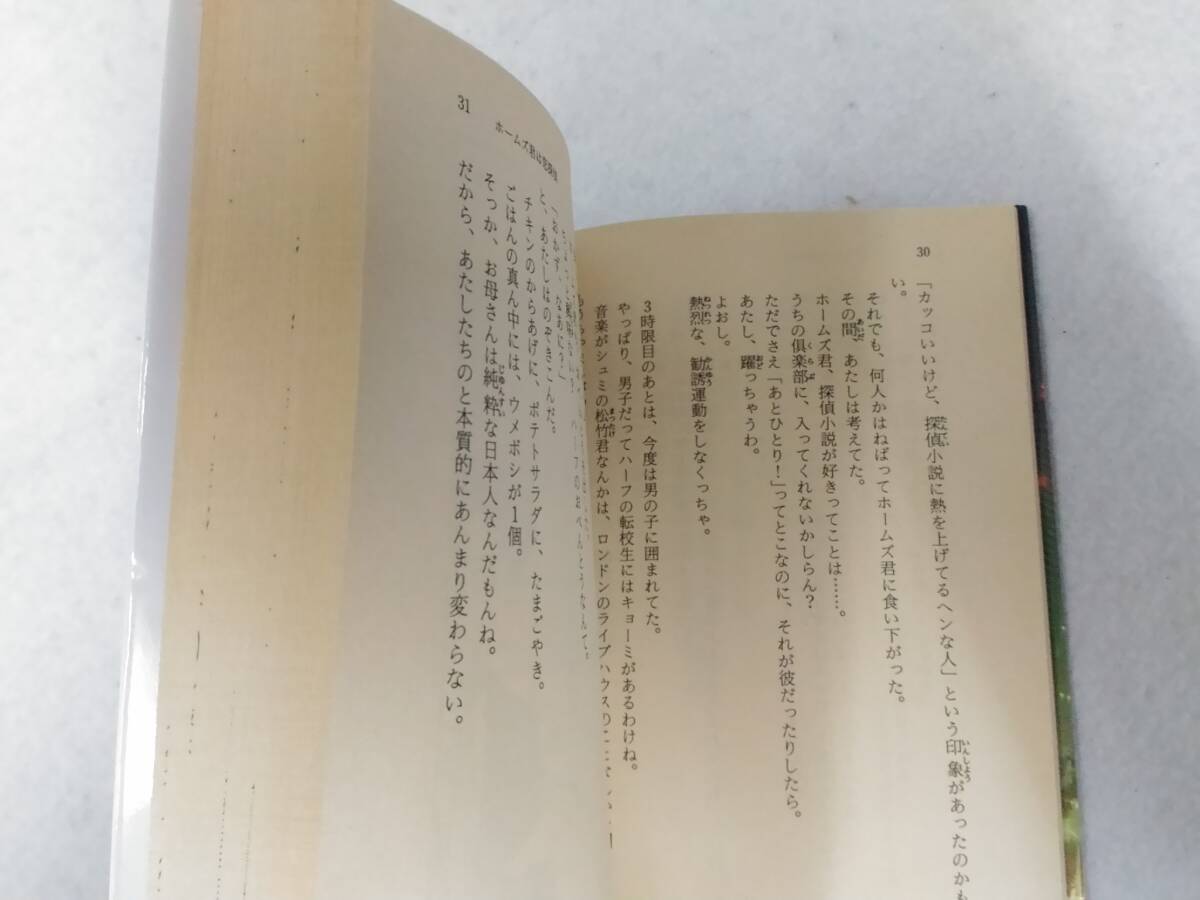 30
「カッコいいけど、探偵小説に熱を上げてるヘンな人」という印象があったのかも
い。
それでも、何人かはねばってホームズ君に食い下がった。
その間、あたしは考えてた。
ホームズ君、探偵小説が好きってことは……。
うちの倶楽部に、入ってくれないかしらん？
ただでさえ「あとひとり！」ってとこなのに、それが彼だったりしたら。
あたし、躍っちゃうわ。
よおし。
熱烈な、勧誘運動をしなくっちゃ。
3時限目のあとは、今度は男の子に囲まれてた。
やっぱり、男子だってハーフの転校生にはキョーミがあるわけね。
音楽がシュミの松竹君なんかは、ロンドンのライブハウスの
31
ホームズ君は
「おかず、なあに？」
と、あたしはのぞきこんだ。
チキンのからあげに、ポテトサラダに、たまごやき。
ごはんの真ん中には、ウメボシが1個。
そっか、お母さんは純粋な日本人なんだもんね。
だから、あたしたちのと本質的にあんまり変わらない。